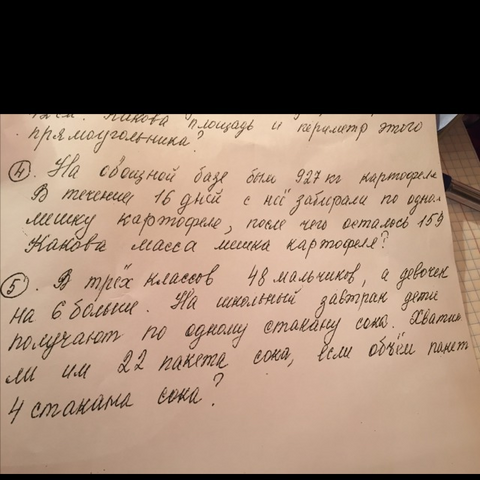 12 см. Какова площадь и периметр этого
прямоугольника?
④. На овощной базе был 927 кг картофеля
В течение 16 дней с неё забирали по одном
мешку картофеле, после чего осталось 159
Какова масса мешка картофеля?
⑤. В трёх классов 48 мальчиков, а девочек
на 6 больше. На школьный завтрак дети
получают по одному стакану сока. Хватит
ли им 22 пакета сока, если объём пакет
4 стакана сока?